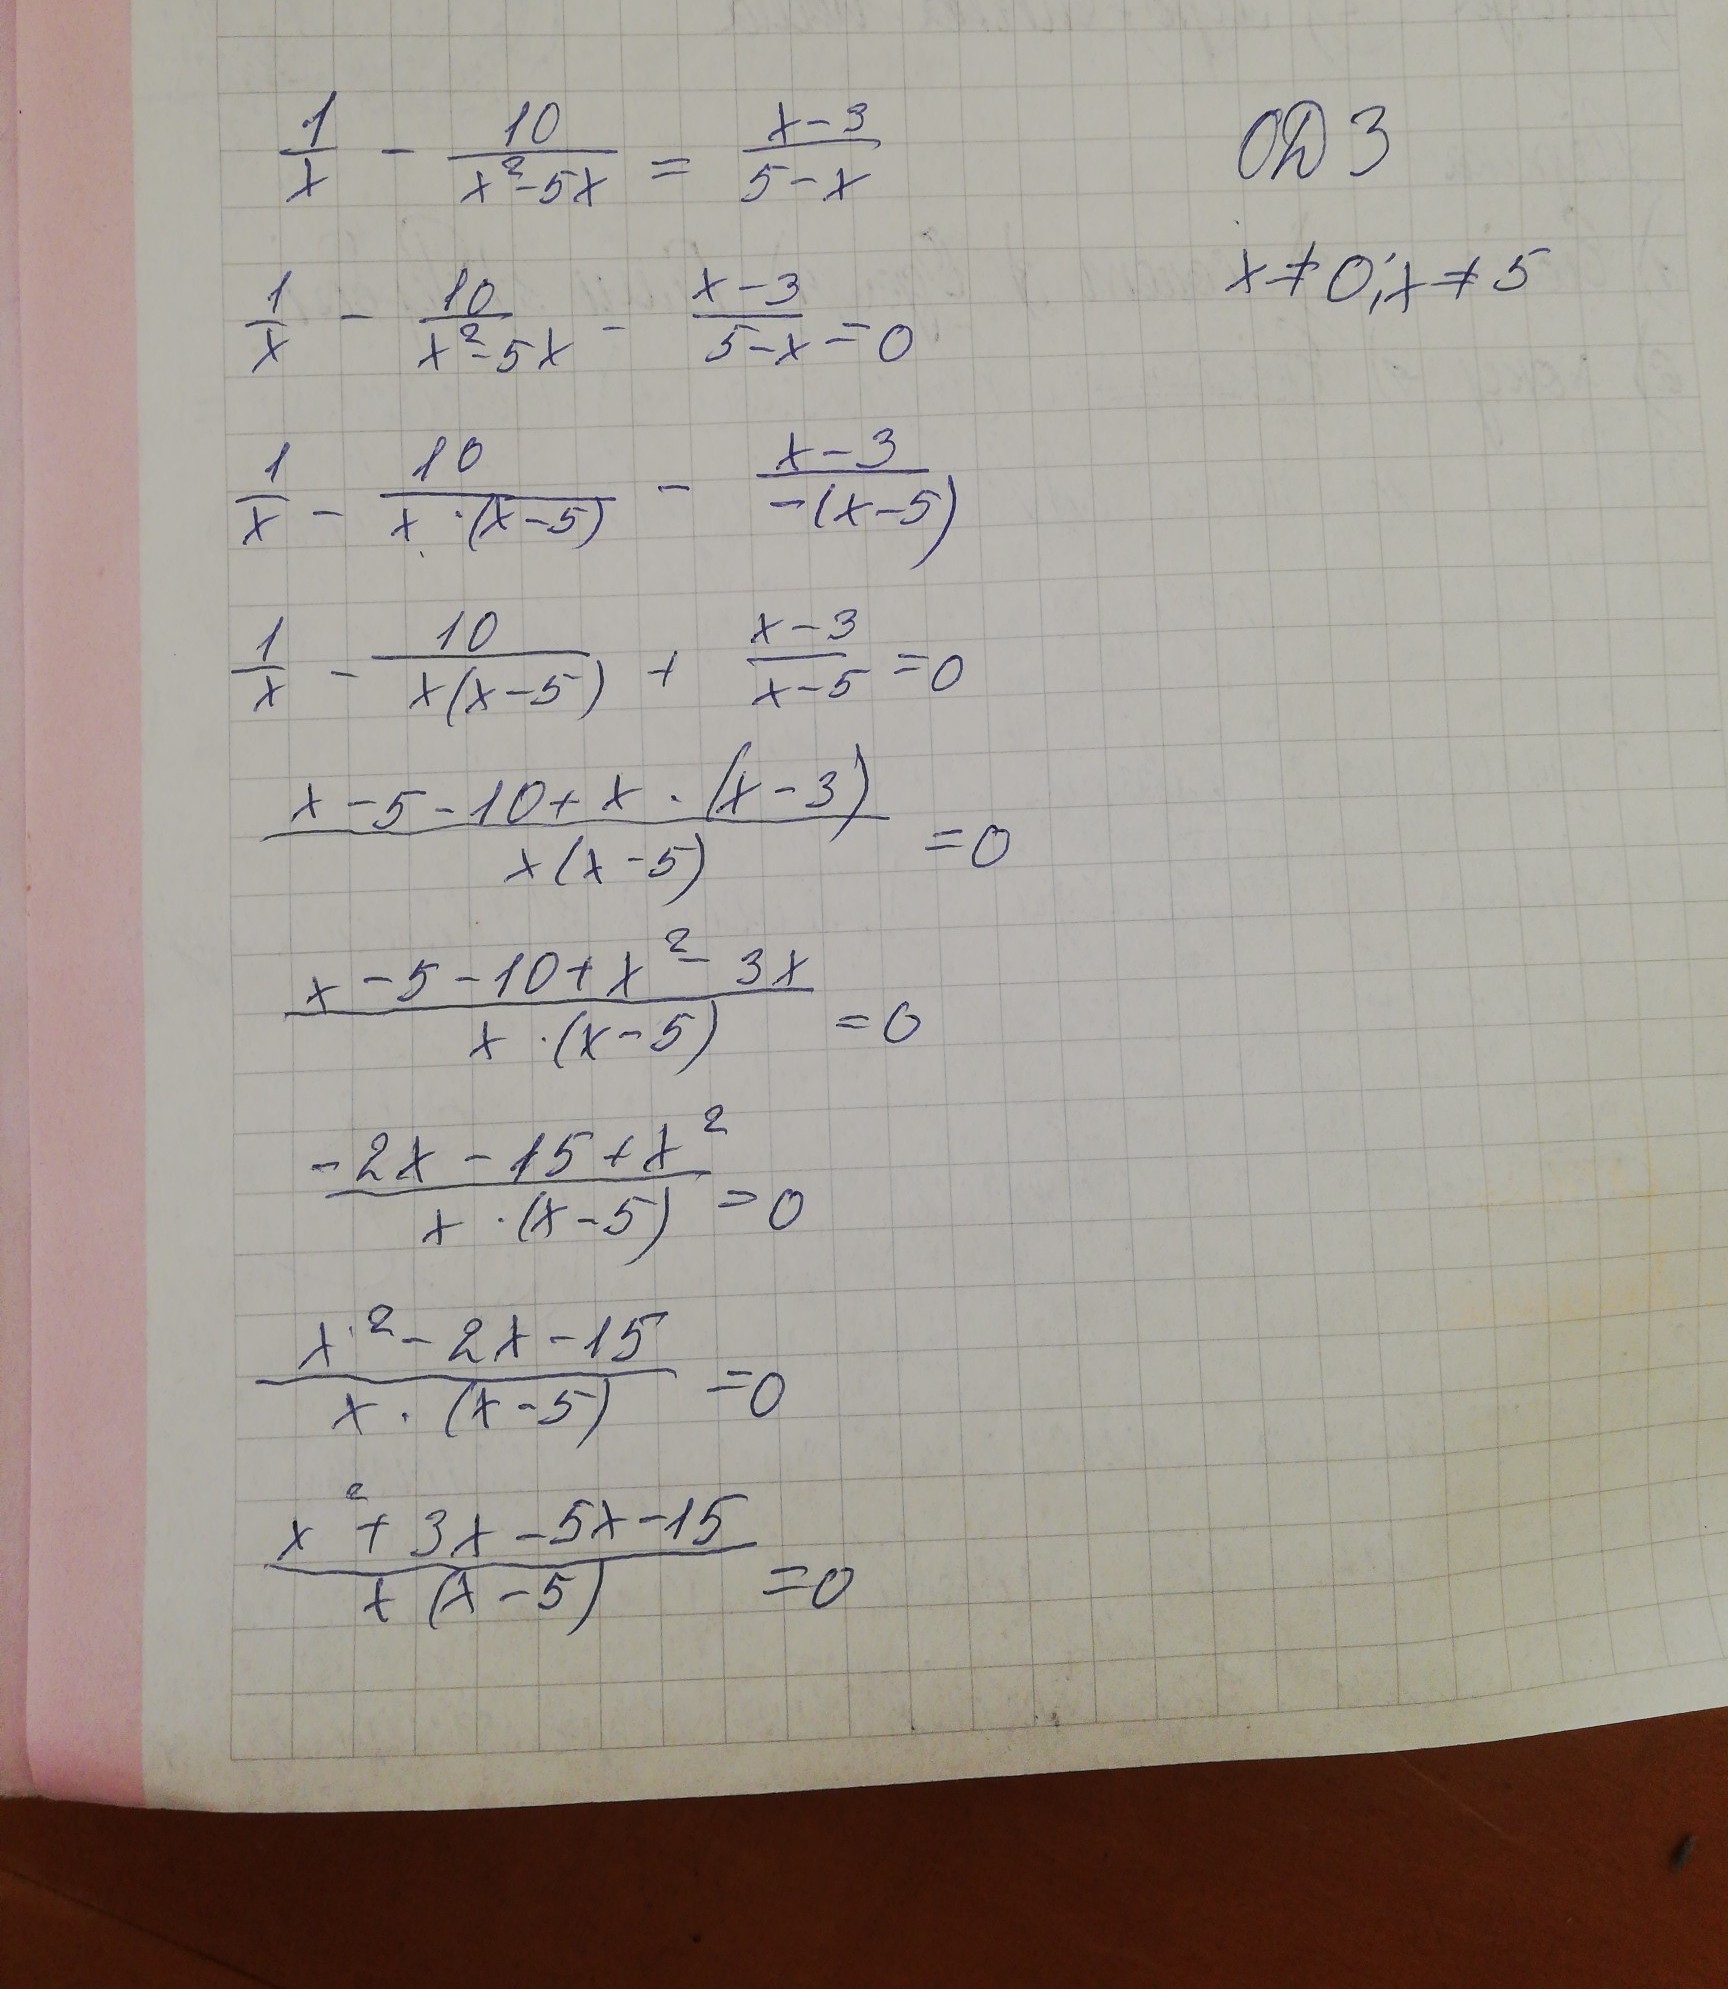 1/x - 10/(x²-5x) = (x-3)/(5-x)
ОДЗ
x≠0; x≠5
1/x - 10/(x²-5x) - (x-3)/(5-x) = 0
1/x - 10/(x·(x-5)) - (x-3)/(-(x-5))
1/x - 10/(x(x-5)) + (x-3)/(x-5) = 0
(x-5-10+x·(x-3))/(x(x-5)) = 0
(x-5-10+x²-3x)/(x·(x-5)) = 0
(-2x-15+x²)/(x·(x-5)) = 0
(x²-2x-15)/(x·(x-5)) = 0
(x²+3x-5x-15)/(x(x-5)) = 0